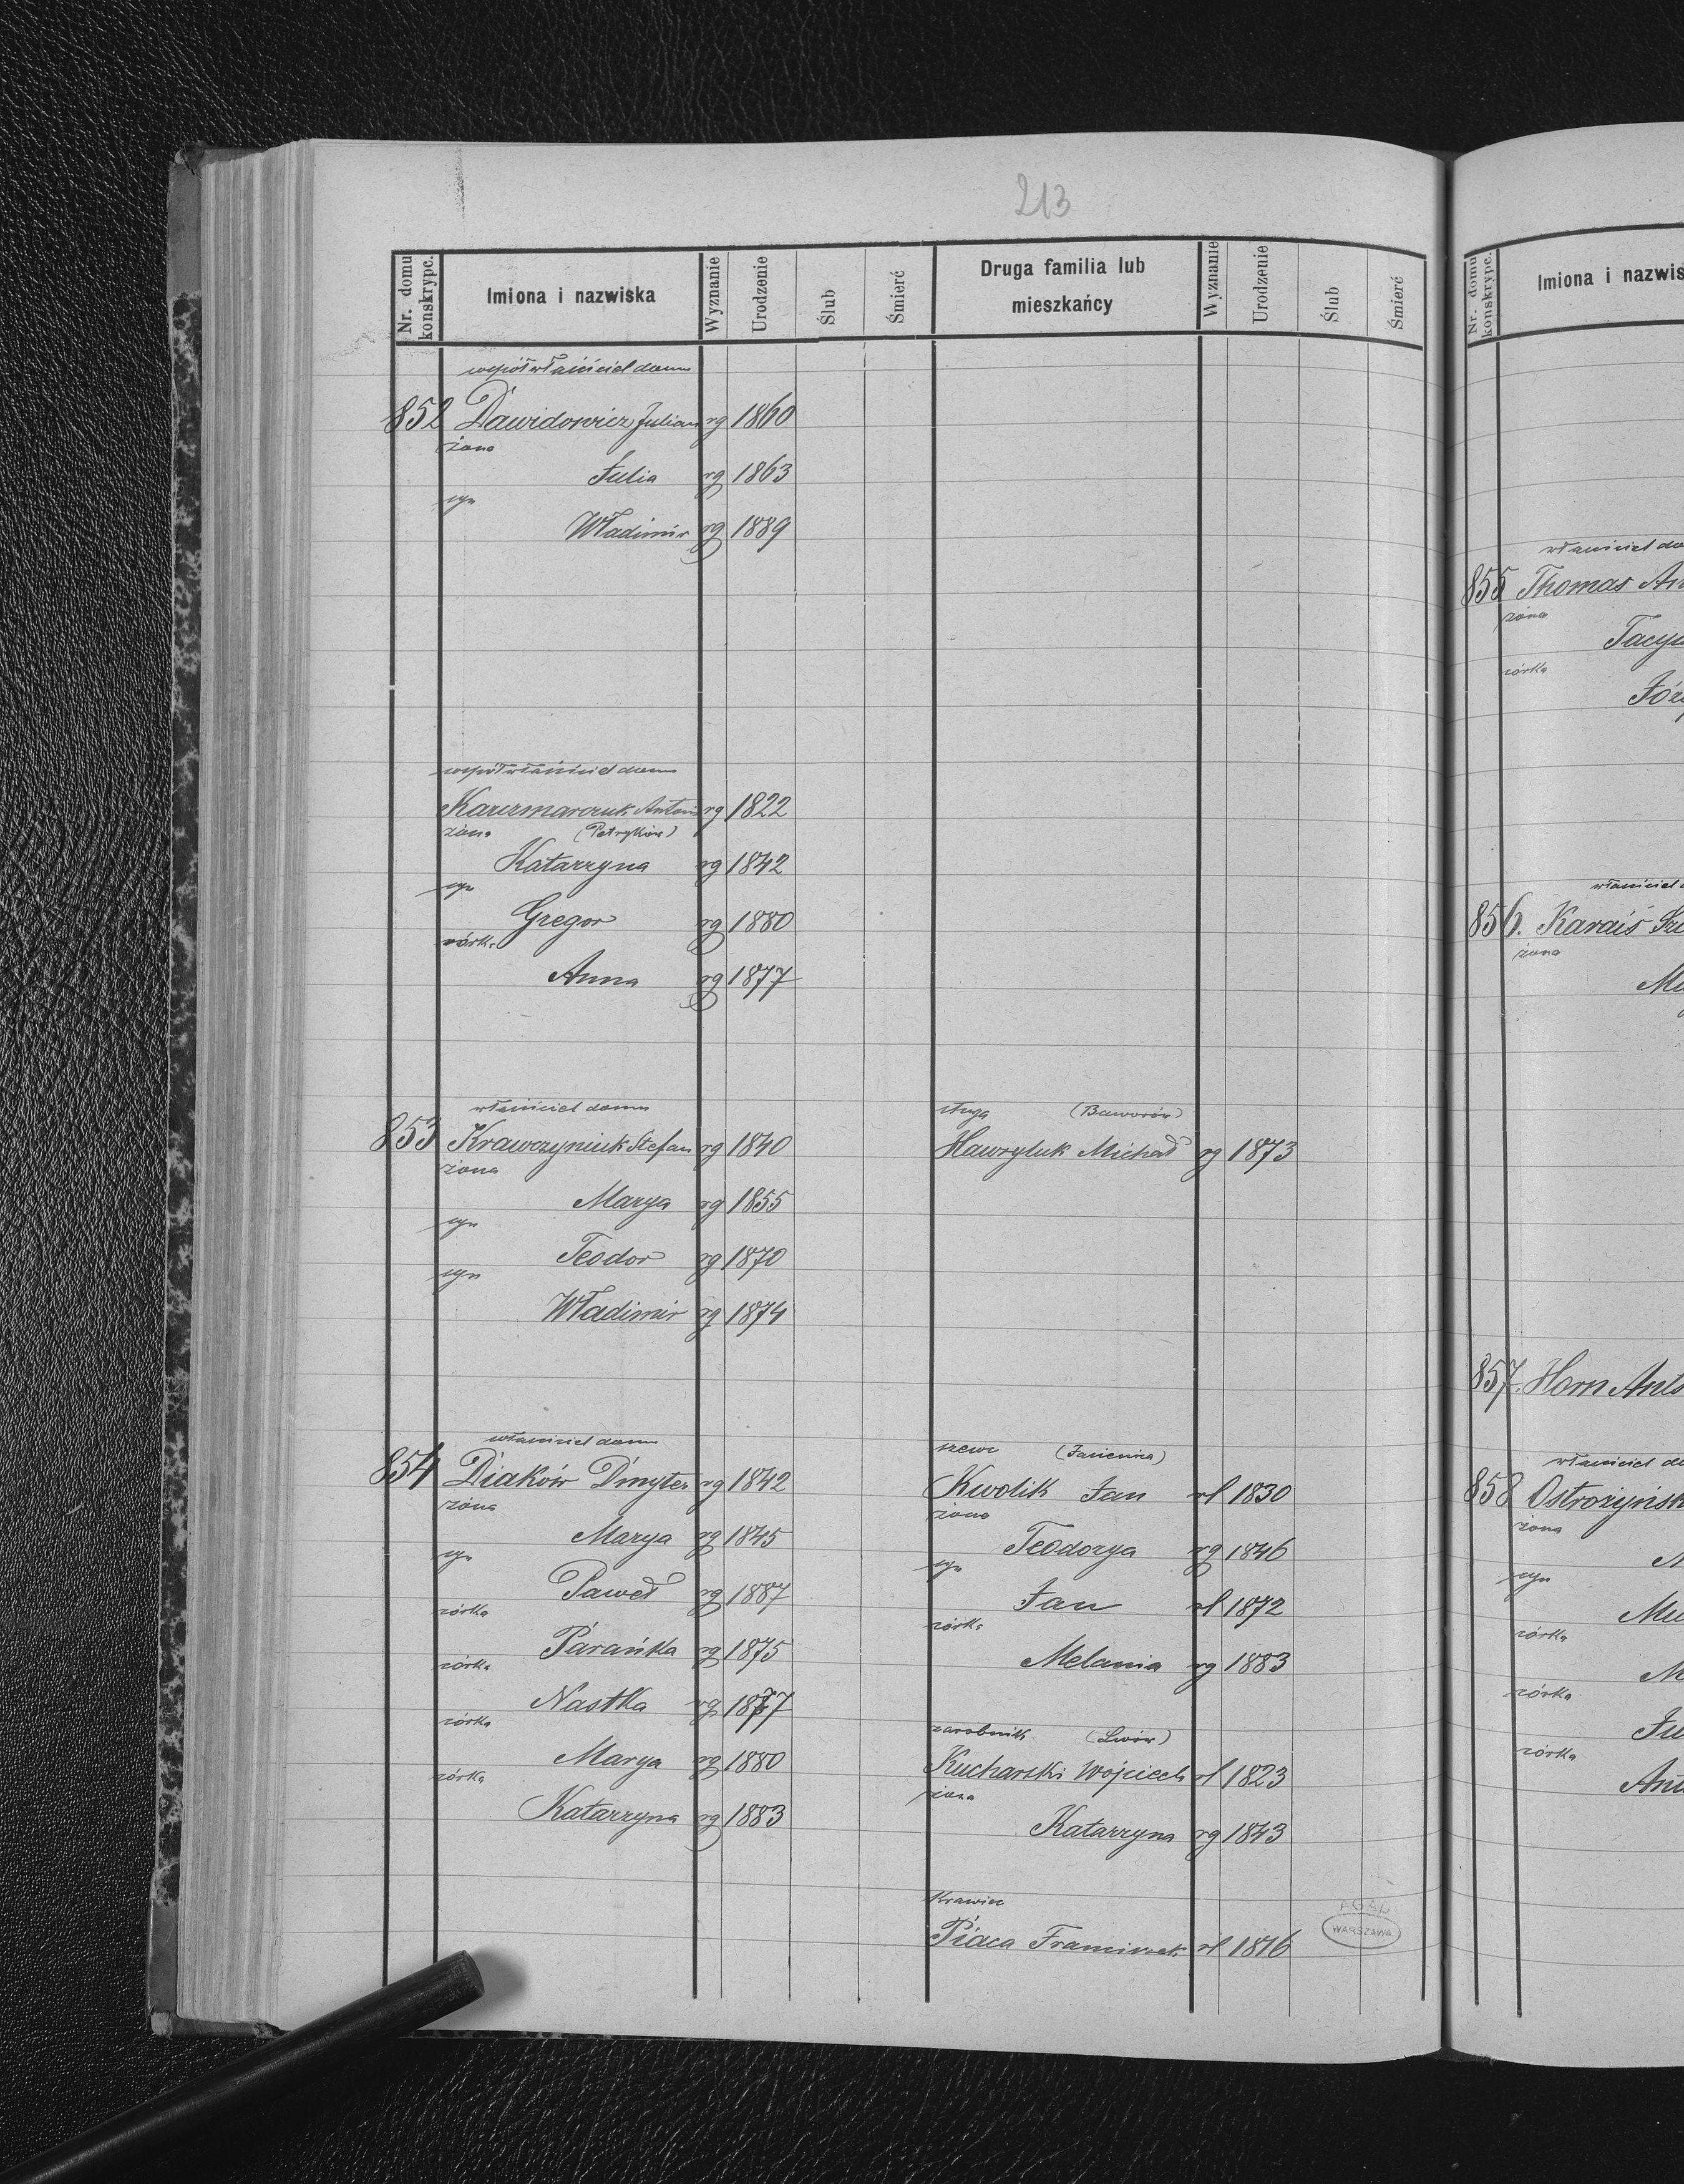 213
Nr. domu konskrypc.
Imiona i nazwiska
Wyznanie
Urodzenie
Ślub
Śmierć
Druga familia lub mieszkańcy
Wyznanie
Urodzenie
Ślub
Śmierć
współwłaściciel domu
852 Dawidowicz Julian rg 1860
żona
Julia rg 1863
syn
Władimir rg 1889
współwłaściciel domu
Karczmarczuk Antoni rg 1822
żona (Petryków)
Katarzyna rg 1842
syn
Gregor rg 1880
córka
Anna rg 1877
właściciel domu
853 Krawczyniuk Stefan rg 1840
żona
Marya rg 1855
syn
Teodor rg 1870
syn
Władimir rg 1874
sługa (Baworów)
Hawryluk Michał rg 1873
właściciel domu
854 Diaków Dmyter rg 1842
żona
Marya rg 1845
syn
Paweł rg 1887
córka
Parańka rg 1875
córka
Nastka rg 1877
córka
Marya rg 1880
córka
Katarzyna rg 1883
szewc (Jasienica)
Kwolik Jan rl 1830
żona
Teodorya rg 1846
syn
Jan rl 1872
córka
Melania rg 1883
zarobnik (Lwów)
Kucharski Wojciech rl 1823
żona
Katarzyna rg 1843
Krawiec
Piaca Franciszek rl 1816
AGAD
WARSZAWA
Nr. domu konskrypc.
Imiona i nazwis
właściciel do
855 Thomas An
żona
Tacyu
córka
Józ
właściciel d
856. Karaiś
żona
857. Horn Anto
właściciel do
858 Ostrożyńsk
żona
syn
córka
córka
córka
Ant